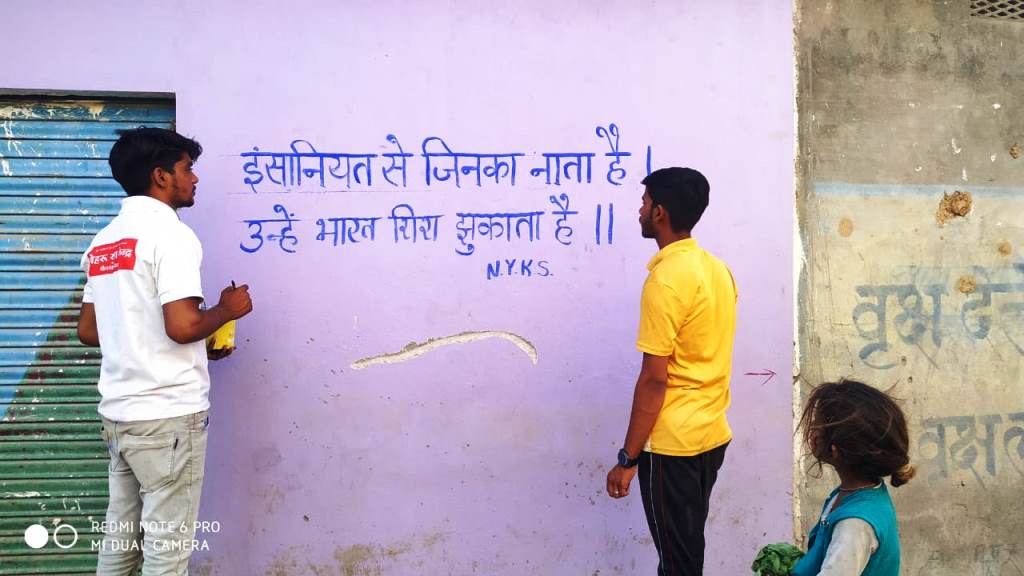 इंसानियत से जिनका नाता है।
उन्हें भारत शिश झुकाता है॥
N.Y.K.S.
वृक्ष
वृक्ष
REDMI NOTE 6 PRO
MI DUAL CAMERA